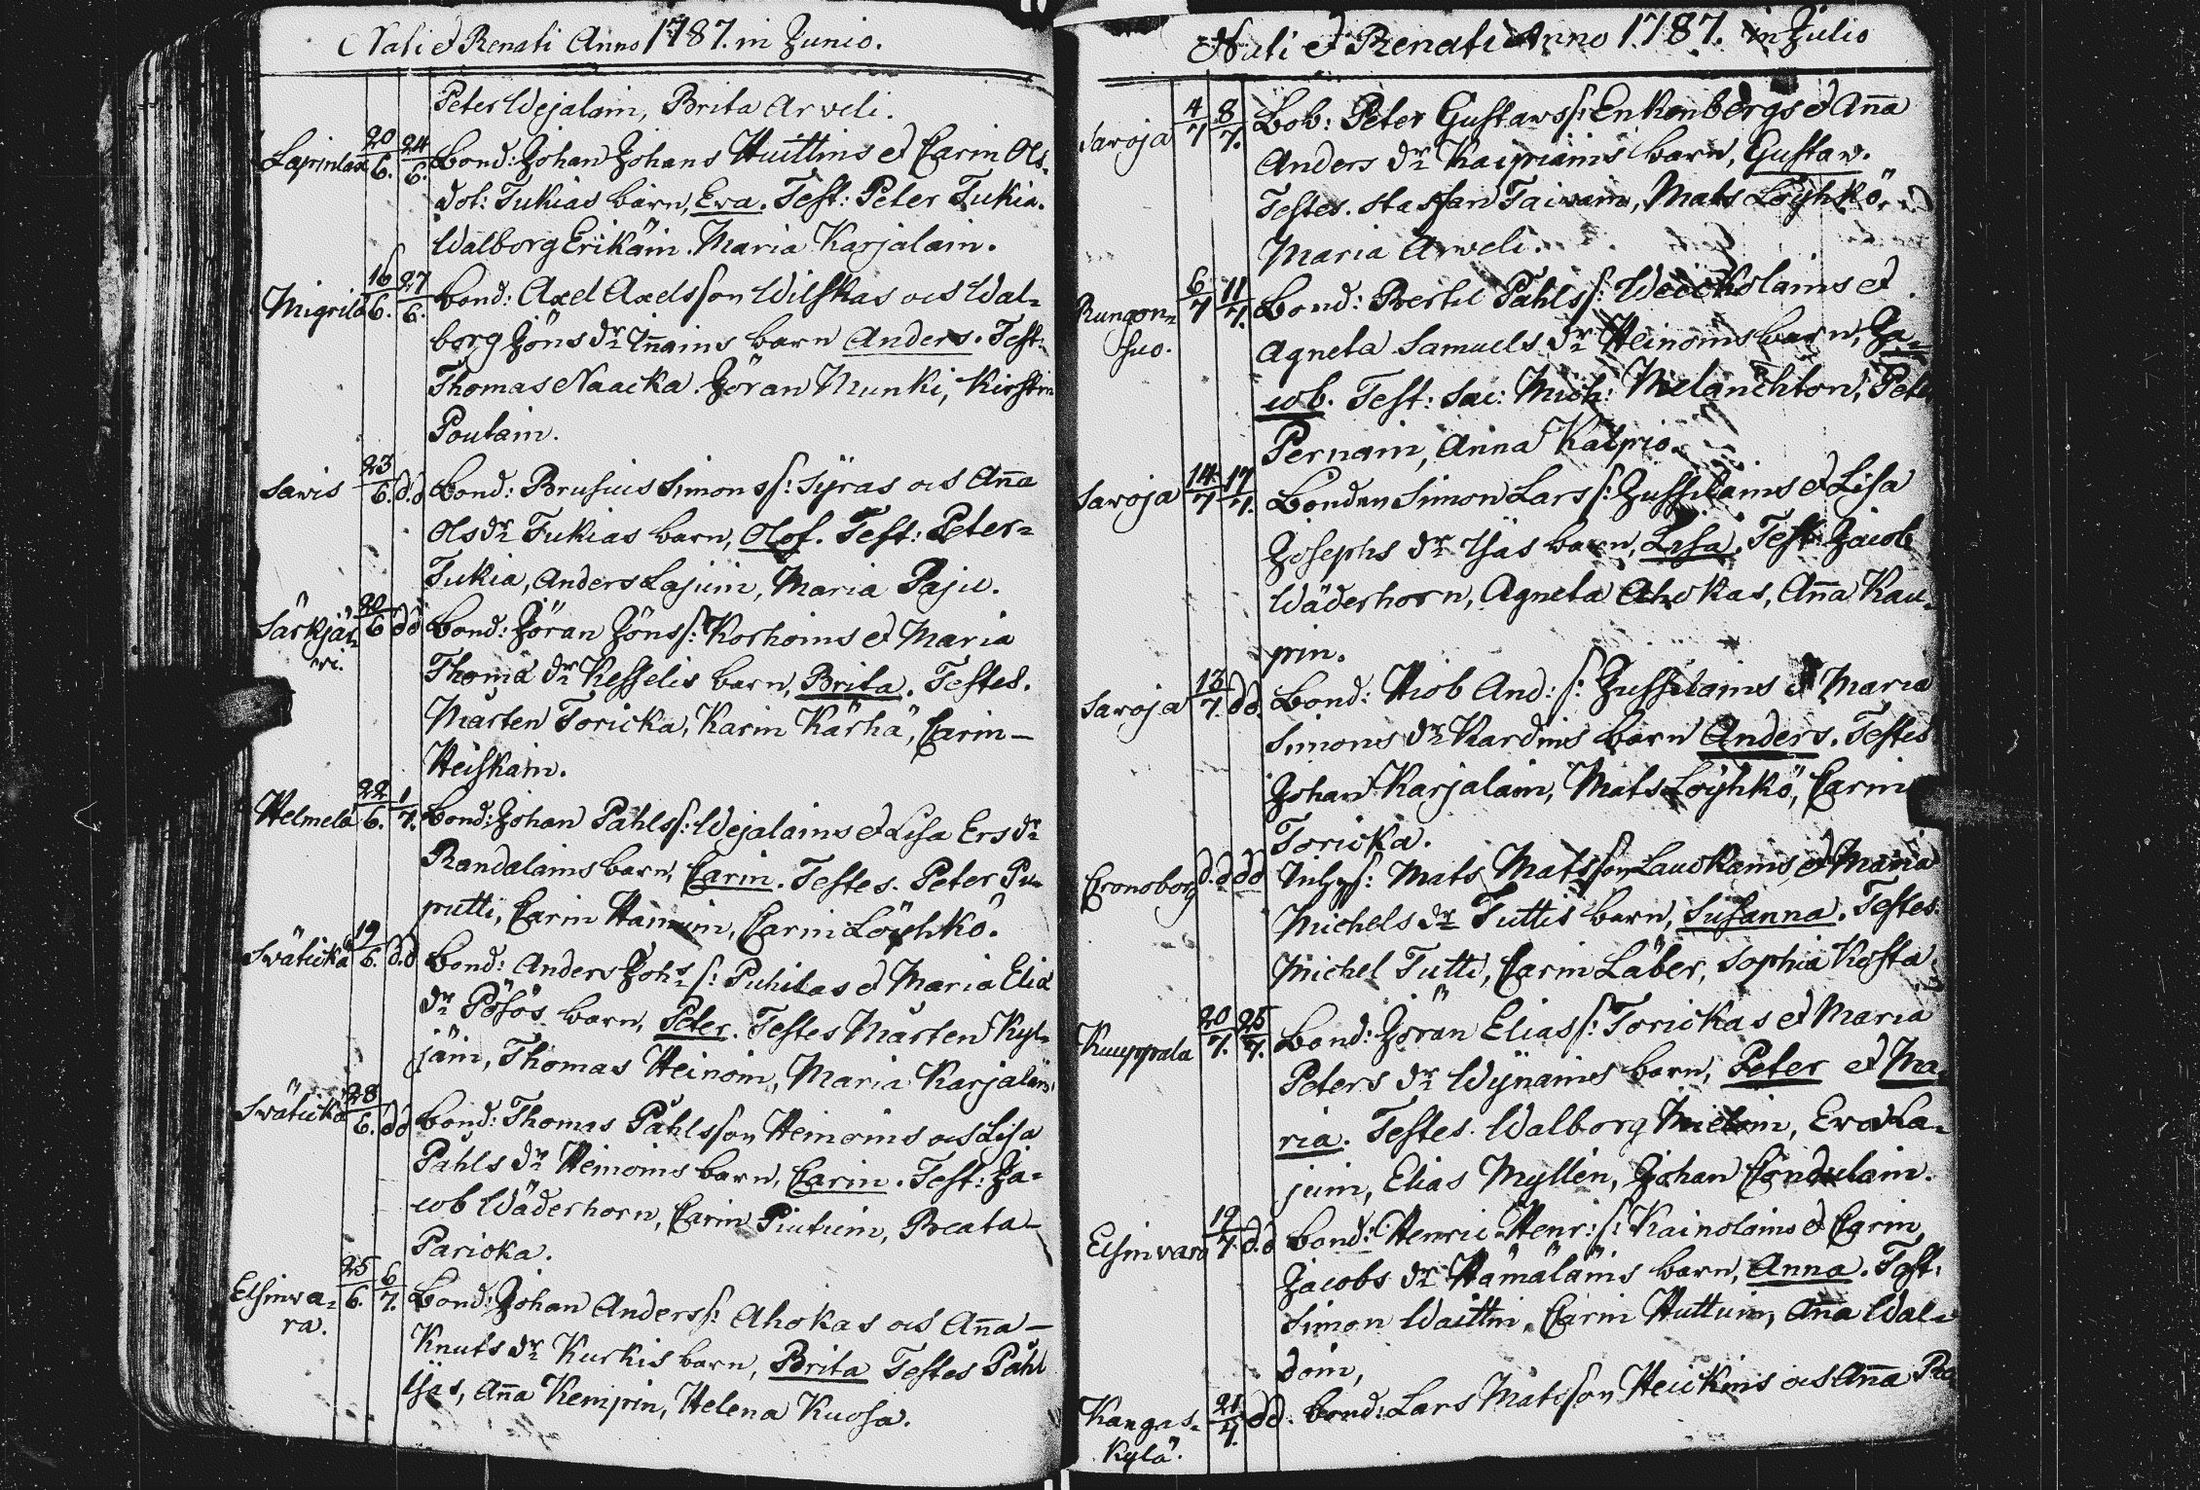 Nati et Renati Anno 1787. in Junio.
Peter Wejalain, Brita Arveli.
Lapinlax 20/6. 24/6. Bond: Johan Johans Huittins et Carin Ols
dot: Tukias barn, Eva. Test: Peter Tukia.
Walborg Erikäin. Maria Karjalain.
Migrila 16/6. 27/6. Bond: Axel Axelsson Wilskas och Wal-
borg Jöns dr Iñains barn Anders. Test:
Thomas Naacka. Jöran Munki, Kirstin
Poutain.
Savis 23/6. d.d Bond: Brusius Simonss: Syras och Aña
Ols dr Tukias barn, Olof. Test: Peter
Tukia, Anders Lajuin, Maria Paju.
Särkjär-
vi. 20/6 dd Bond: Jöran Jönss: Korhoins et Maria
Thomæ dr Kesselis barn, Brita. Testes.
Mårten Toricka, Karin Kärhä, Carin
Heiskain.
Helmelä 22/6. 1/7. Bond: Johan Påhlss: Wejalains et Lisa Ers dr
Randalains barn, Carin. Testes. Peter Pu-
putti, Carin Hämein, Carin Löyhkö.
Svätickä 19/6. d.d Bond: Anders Johs s: Puhilas et Maria Eliæ
dr Pösös barn, Peter. Testes Mårten Kyl-
jäin, Thomas Heinoin, Maria Karjalain
Svätickä 28/6. dd Bond: Thomas Påhlsson Heinoins och Lisa
Påhls dr Heinoins barn, Carin. Test: Ja-
cob Wäderhorn, Carin Piutuin, Beata
Paricka.
Elsinva-
ra. 25/6. 6/7. Bond: Johan Anderss: Ahokas och Aña
Knuts dr Kurkis barn, Brita Testes Påhl
Ijas, Aña Kempin, Helena Kuosa.
Nati et Renati Anno 1787. in Julio
Saroja 4/7 8/7. Bob: Peter Gustavss: Enkenbergs et Aña
Anders dr Kaipiains barn, Gustav.
Testes. Staffan Taivain, Mats Löyhkö,
Maria Arveli.
Rungon-
suo. 6/7 11/7. Bond: Bertil Påhlss: Weickolains et
Agneta Samuels dr Heinoins barn, Ja-
cob. Test: Sac: Mich: Melanchton, Peter
Pernain, Anna Kalpio.
Saroja 14/7 17/7. Bonden Simon Larss: Jussilains et Lisa
Josephs dr Ijäs barn, Lisa. Test: Jacob
Wäderhorn, Agneta Ahokas, Aña Kau-
pin.
Saroja 13/7. dd. Bond: Hiob And: s: Jussilains et Maria
Simons dr Kardins barn Anders. Testes
Johan Karjalain, Mats Löyhkö, Carin
Toricka.
Cronoborg d.d dd Inhys: Mats Matsson Lauckains et Maria
Michels dr Tuttis barn, Susanna. Testes:
Michel Tutti, Carin Läber, Sophia Kosta.
Kuuppala 20/7. 25/7. Bond: Jöran Eliass: Torickas et Maria
Peters dr Wÿnains barn, Peter et Ma-
ria. Testes. Walborg Mieloin, Eva La-
juin, Elias Myllen, Johan Condulain.
Elsinvara 19/7. d.d Bond: Henric Henr: s: Kainolains et Carin
Jacobs dr Hämäläins barn, Anna. Test:
Simon Waittin, Carin Huttuin, Aña Wal-
doin,
Kangas-
kylä. 21/7. dd. Bond: Lars Matsson Heickins och Aña